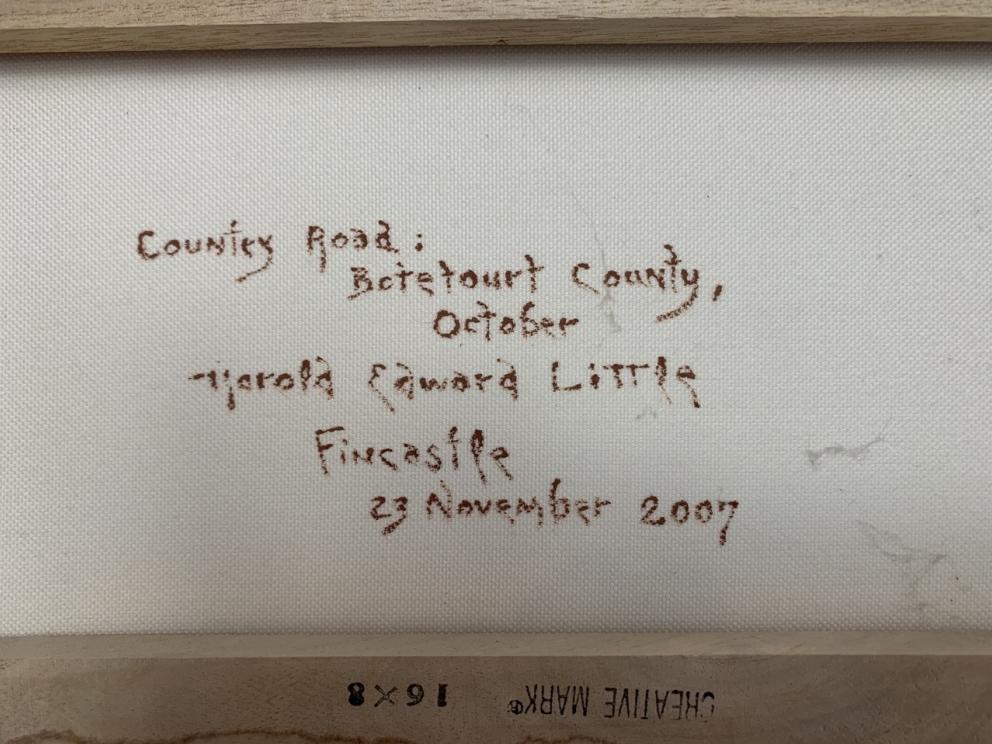 County Road:
Botetourt County,
October
Harold Edward Little
Fincastle
23 November 2007
16×8 CREATIVE MARK®